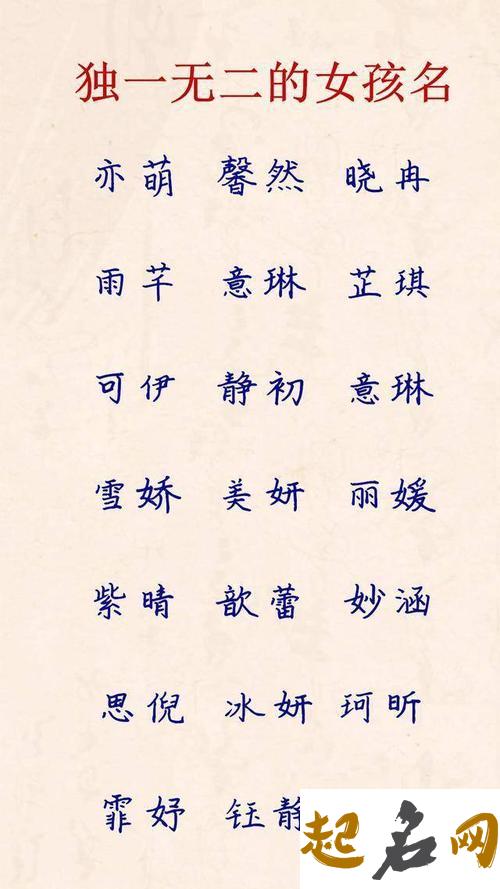 独一无二的女孩名
亦萌 馨然 晓冉
雨芊 意琳 芷琪
可伊 静初 意琳
雪娇 美妍 丽媛
紫晴 歆蕾 妙涵
思倪 冰妍 珂昕
霏妤 钰静
起名网